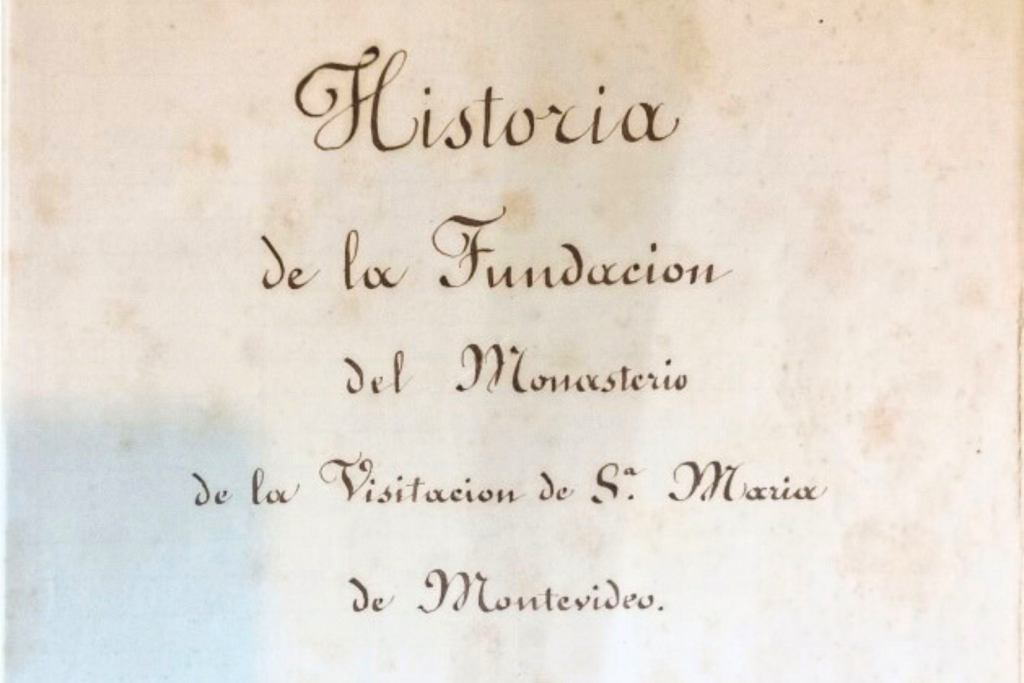 Historia
de la Fundacion
del Monasterio
de la Visitacion de Sª. Maria
de Montevideo.